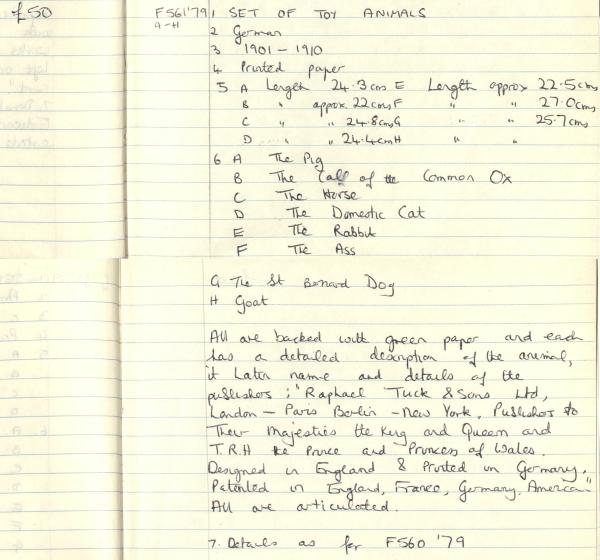 £50
F561'79 1 SET OF TOY ANIMALS
A-H
2 German
3 1901-1910
4 Printed paper
5 A Length 24.3cms E Length approx 22.5cms
B " approx 22cms F " " 27.0cms
C " " 24.8cms G " " 25.7cms
D " " 24.4cm H " "
6 A The Pig
B The Calf of the Common Ox
C The Horse
D The Domestic Cat
E The Rabbit
F The Ass
G The St Bernard Dog
H Goat
All are backed with green paper and each
has a detailed description of the animal,
it Latin name and details of the
publishers; "Raphael Tuck & Sons Ltd,
London - Paris Berlin - New York. Publishers to
Their Majesties the King and Queen and
T.R.H the Prince and Princess of Wales.
Designed in England & Printed in Germany.
Patented in England, France, Germany, American"
All are articulated.
7. Details as for F560 '79